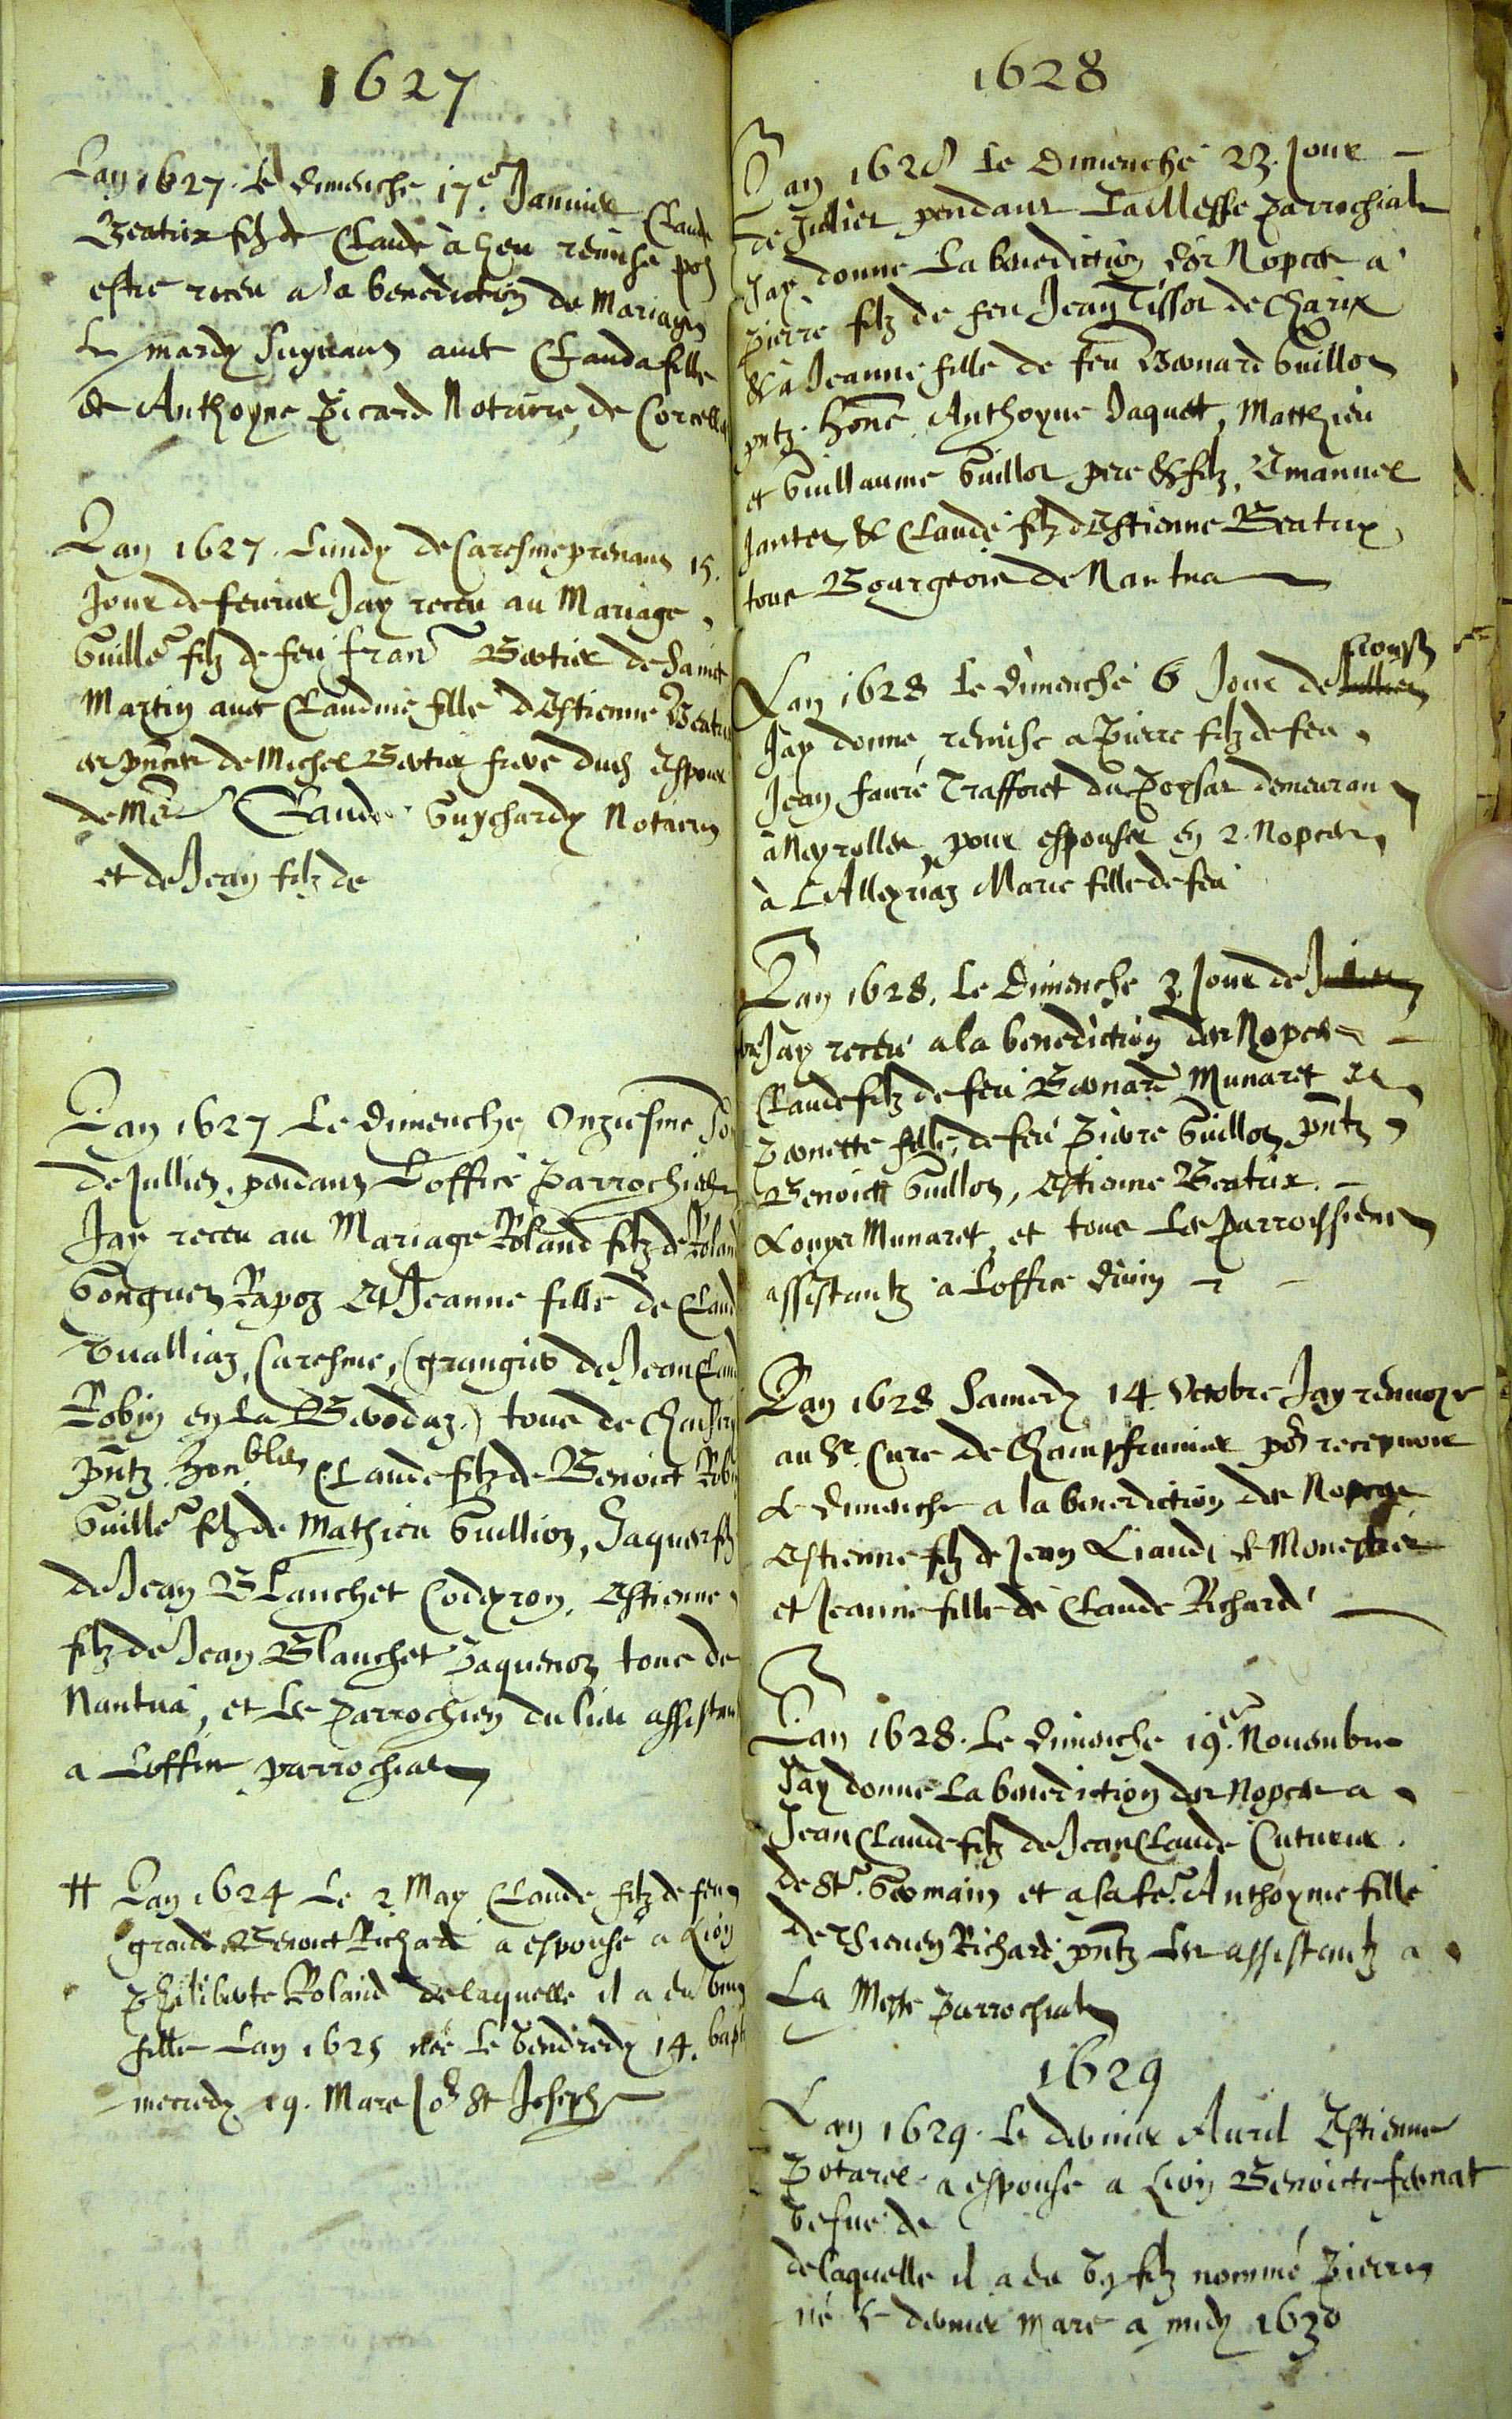 1627
Lan 1627. Le dimenche 17e. Januier Claude
Beatrix filz de Claude à heu remise por
estre receu a la benediction de Mariage
le mardy suyuant auec Clauda fille
de Anthoyne Picard Notaire, de Corcelles
Lan 1627. Lundy de Caresmeprenant 15.
Jour de feurier Jay receu au Mariage
Guille filz de feu Fran Bertier de Sainct
Martin auec Claudine fille dEstienne Beatrix
es pntces de Michel Bertier frere dud Espoux
de Me Claude Guychardy Notaire
et de Jean filz de
Lan 1627 Le dimenche Onziesme Jour
de Jullier, pendant Loffice Parrochial
Jay receu au Mariage Roland filz de Roland
Gonguet Rapoz Et Jeanne fille de Claude
Vualliaz, Caresme, (grangier de Jean Claude
Robin en la ) tous de
pntz. honbles Claude filz de Benoict Robin
Guille filz de Mathieu Guillion, Jaques filz
de Jean Blanchet Codeyron, Estienne
filz de Jean Blanchet Jaquenoz tous de
Nantua, et les Parrochien du lieu assistant
a Loffice parrochial
# Lan 1624 Le 2 May Claude filz de feu
grand Benoict Richard a espousé a Lion
Philiberte Roland de laquelle il a eu vne
fille Lan 1625 née le Vendredy 14. bapt
mecredy 19. Mars Jor St Joseph
1628
Lan 1628 Le Dimenche 23. Jour
de Jullier pendant La Messe Parrochiale
Jay donne La benediction des Nopces a
Pierre filz de feu Jean Tissot de Charix
& à Jeanne fille de feu Bernard Guillot
pntz. hone. Anthoyne Jaquet, Matthieu
et Guillaume Guillot pere & filz, Emanuel
Jantet & Claude filz dEstienne Beatrix
tous Bourgeois de Nantua
Lan 1628 Le dimenche 6 Jour de Aoust
Jay donné remise a Pierre filz de feu
Jean Faure Trafforet du Poysat demeurant
à Neyrolles pour espouser en 2. Nopces
à LAlleyriaz Marie fille de feu
Lan 1628. Le Dimenche 3. Jour de
Jay receu a la benediction des Nopces
Claude filz de feu Bernard Munaret Et
Pernette fille de feu Pierre Guillot pntz
Benoict Guillot, Estienne Beatrix.
Louys Munaret et tous Les Parroyssiens
assistantz a Loffice diuin
Lan 1628 Samedy 14. Octobre Jay renuoye
au Sr. Cure de Champfromier por recepuoir
Le dimenche a la benediction des Nopces
Estienne filz de Jean Liaudi de Monestier
et Jeanne fille de Claude Richard
Lan 1628. Le dimenche 19e. Nouembre
Jay donne La benediction des Nopces a
Jean Claude filz de Jean Claude Cuturier.
de St. Germain et a sa fe. Anthoyne fille
de Thieuen Richard pntz Les assistantz a
La Messe Parrochiale
1629
Lan 1629. Le dernier Auril Estienne
Potarel a espouse a Lion Benoicte Fernat
Vefue de
delaquelle il a eu vn filz nommé Pierre
né Le dernier Mars a midy 1630